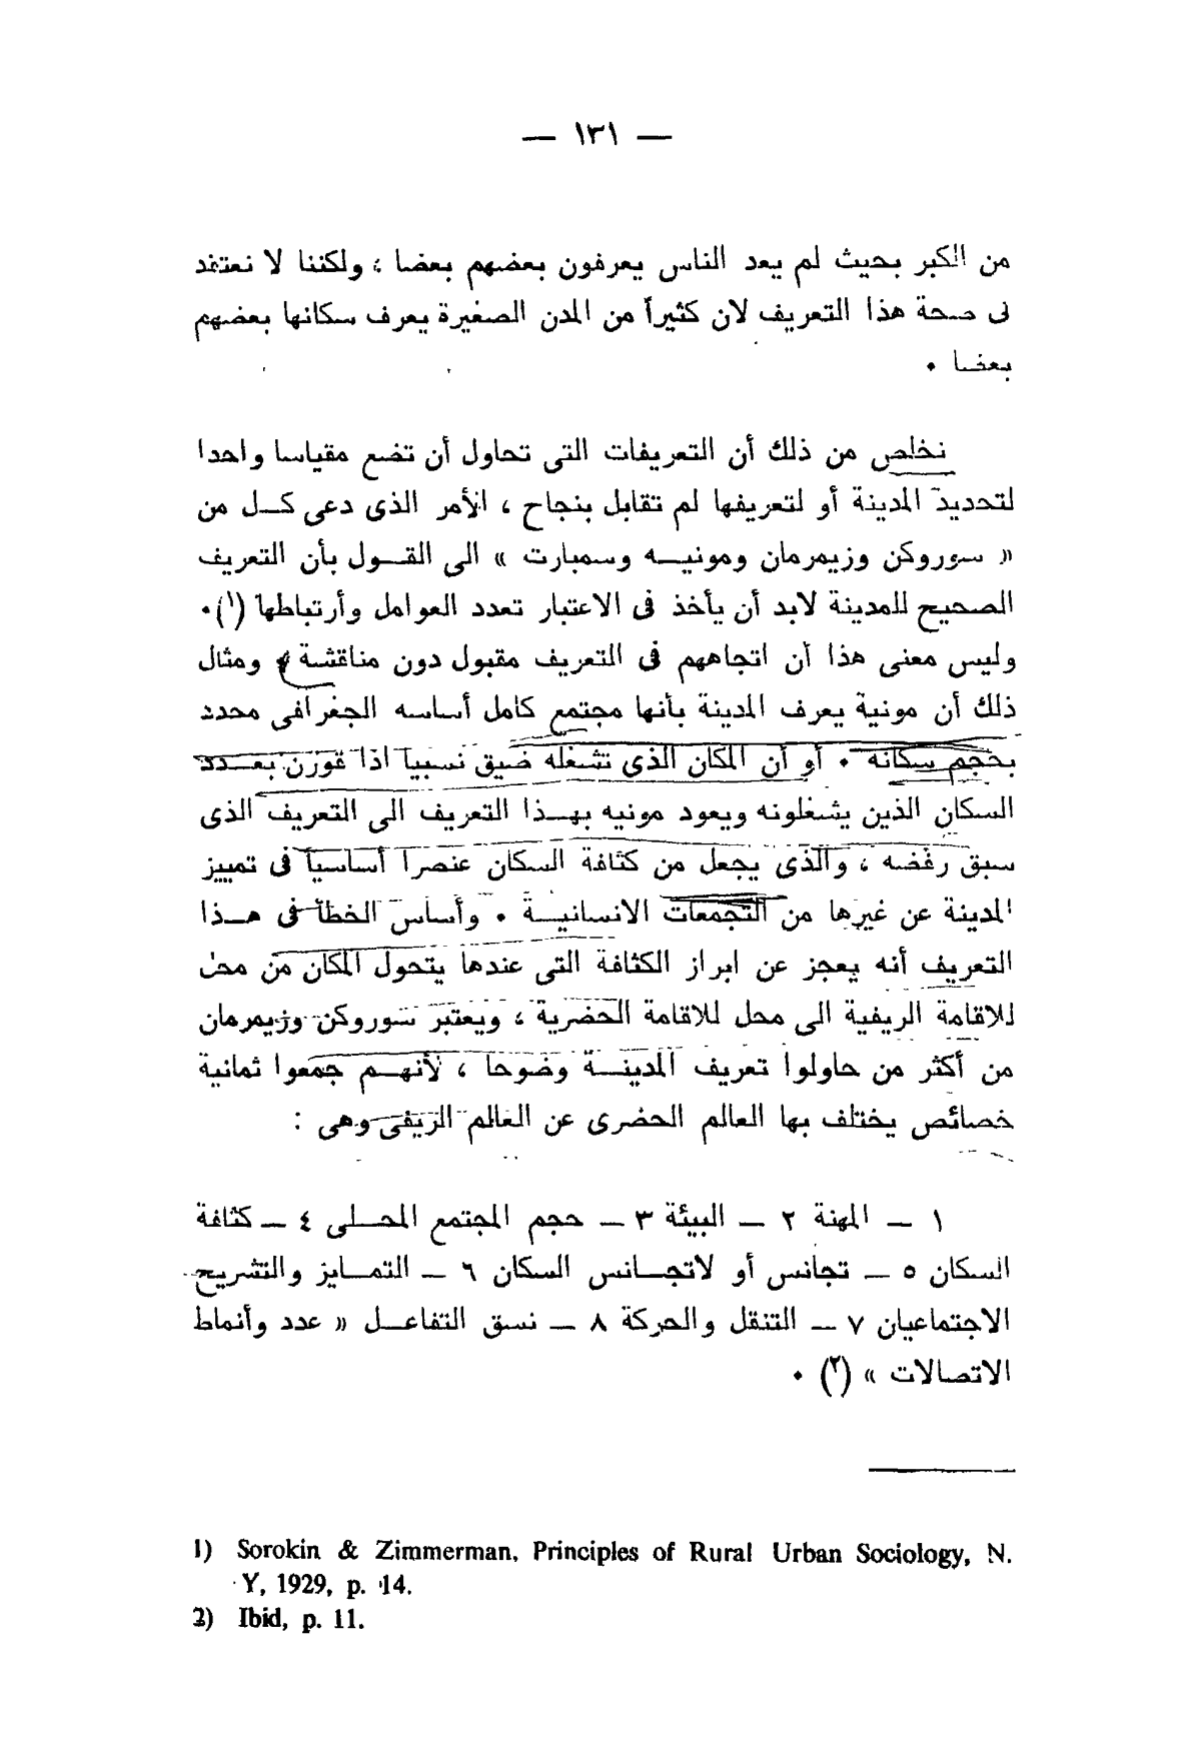 — ١٣١ —
من الكبر بحيث لم يعد الناس يعرفون بعضهم بعضا ، ولكننا لا نعتقد
فى صحة هذا التعريف لان كثيراً من المدن الصغيرة يعرف سكانها بعضهم
بعضا ٠
نخلص من ذلك أن التعريفات التى تحاول أن تضع مقياسا واحدا
لتحديد المدينة أو لتعريفها لم تقابل بنجاح ، الأمر الذى دعى كـل من
« سوروكن وزيمرمان ومونيـه وسمبارت » الى القـول بأن التعريف
الصحيح للمدينة لابد أن يأخذ فى الاعتبار تعدد العوامل وأرتباطها (١)٠
وليس معنى هذا أن اتجاههم فى التعريف مقبول دون مناقشة ، ومثال
ذلك أن مونية يعرف المدينة بأنها مجتمع كامل أساسه الجغرافى محدد
بحجم سكانه ٠ أو أن المكان الذى تشغله ضيق نسبيا اذا قورن بعـدد
السكان الذين يشغلونه ويعود مونيه بهـذا التعريف الى التعريف الذى
سبق رفضه ، والذى يجعل من كثافة السكان عنصرا أساسياً فى تمييز
المدينة عن غيرها من التجمعات الانسانيـة ٠ وأساس الخطأ فى هـذا
التعريف أنه يعجز عن ابراز الكثافة التى عندها يتحول المكان من محل
للاقامة الريفية الى محل للاقامة الحضرية ، ويعتبر سوروكن وزيمرمان
من أكثر من حاولوا تعريف المدينـة وضوحا ، لأنهـم جمعوا ثمانية
خصائص يختلف بها العالم الحضرى عن العالم الريفى وهى :
١ ـ المهنة ٢ ـ البيئة ٣ ـ حجم المجتمع المحـلى ٤ ـ كثافة
السكان ٥ ـ تجانس أو لاتجـانس السكان ٦ ـ التمـايز والتشريح
الاجتماعيان ٧ ـ التنقل والحركة ٨ ـ نسق التفاعـل « عدد وأنماط
الاتصالات » (٢) ٠
1) Sorokin & Zimmerman, Principles of Rural Urban Sociology, N.
Y, 1929, p. 14.
2) Ibid, p. 11.